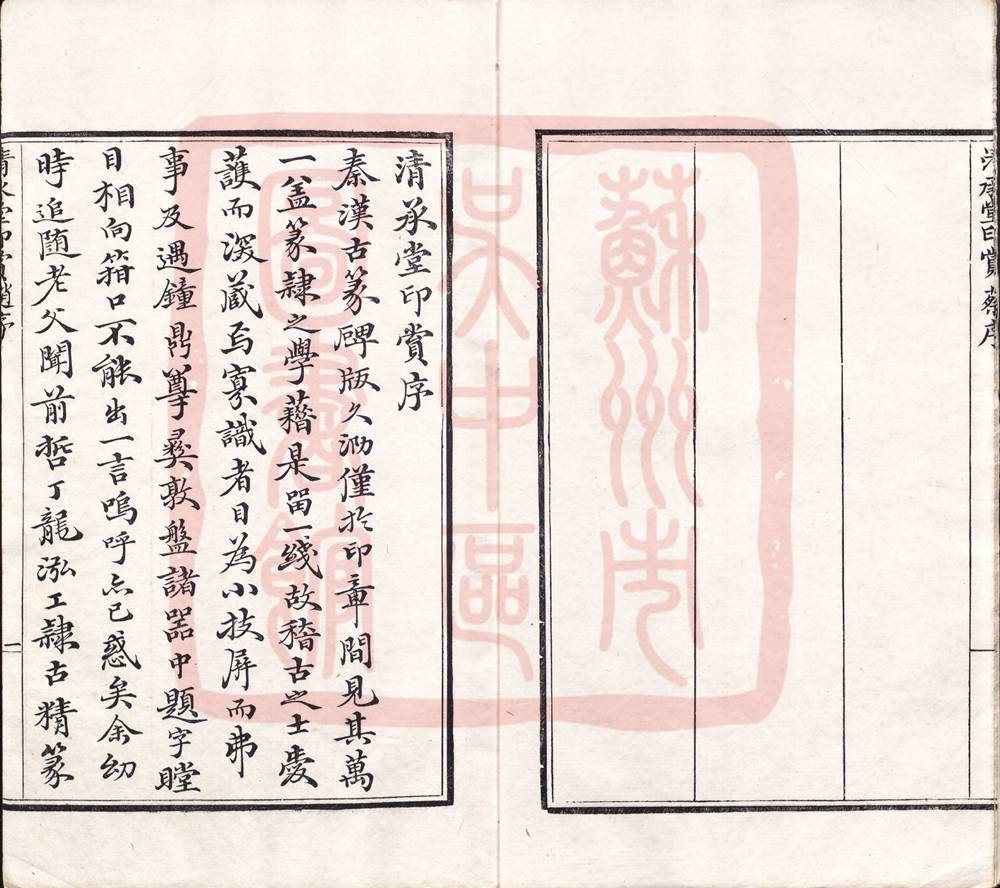 清承堂印賞 蔡序
清承堂印賞序
秦漢古篆碑版久泐僅於印章間見其萬
一盖篆隷之學藉是留一綫故稽古之士愛
護而深藏焉寡識者目為小技屏而弗
事及遇鐘鼎尊彝敦盤諸器中題字瞠
目相向箝口不能出一言嗚呼亦已惑矣余幼
時追随老父聞前哲丁龍泓工隷古精篆
一
蘇州市
吳中區
圖書館